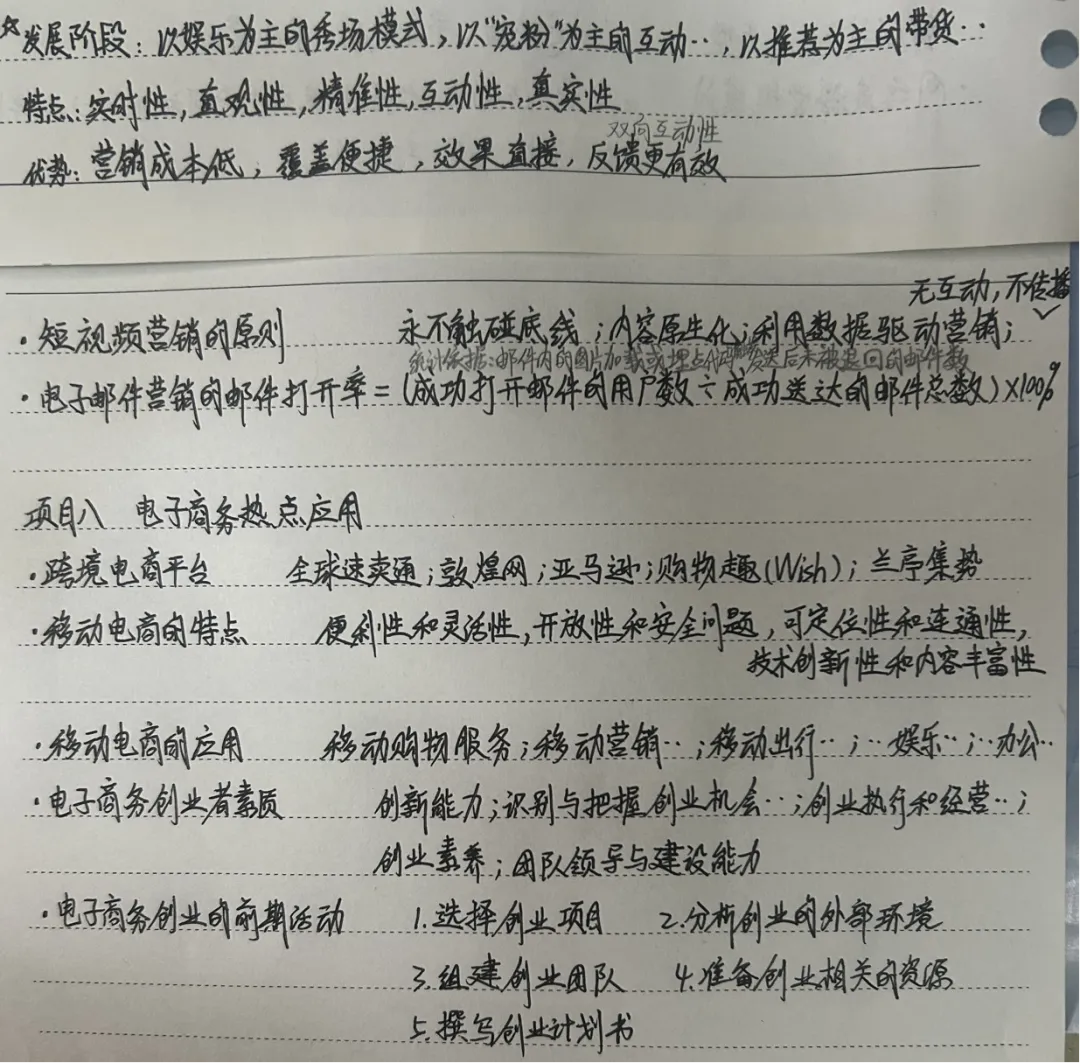 ☆发展阶段：以娱乐为主的秀场模式，以“宠粉”为主的互动··，以推荐为主的带货··
特点：实时性，直观性，精准性，互动性，真实性
双向互动性
优势：营销成本低，覆盖便捷，效果直接，反馈更有效
无互动，不传播
·短视频营销的原则 永不触碰底线；内容原生化；利用数据驱动营销；
统计依据：邮件内的图片加载或埋点代码 发送后未被退回的邮件数
·电子邮件营销的邮件打开率=（成功打开邮件的用户数÷成功送达的邮件总数）×100%
项目八 电子商务热点应用
·跨境电商平台 全球速卖通；敦煌网；亚马逊；购物趣(Wish)；兰亭集势
·移动电商的特点 便利性和灵活性，开放性和安全问题，可定位性和连通性，
技术创新性和内容丰富性
·移动电商的应用 移动购物服务；移动营销··；移动出行··；··娱乐··；··办公··
·电子商务创业者素质 创新能力；识别与把握创业机会··；创业执行和经营··；
创业素养；团队领导与建设能力
·电子商务创业的前期活动 1.选择创业项目 2.分析创业的外部环境
3.组建创业团队 4.准备创业相关的资源
5.撰写创业计划书